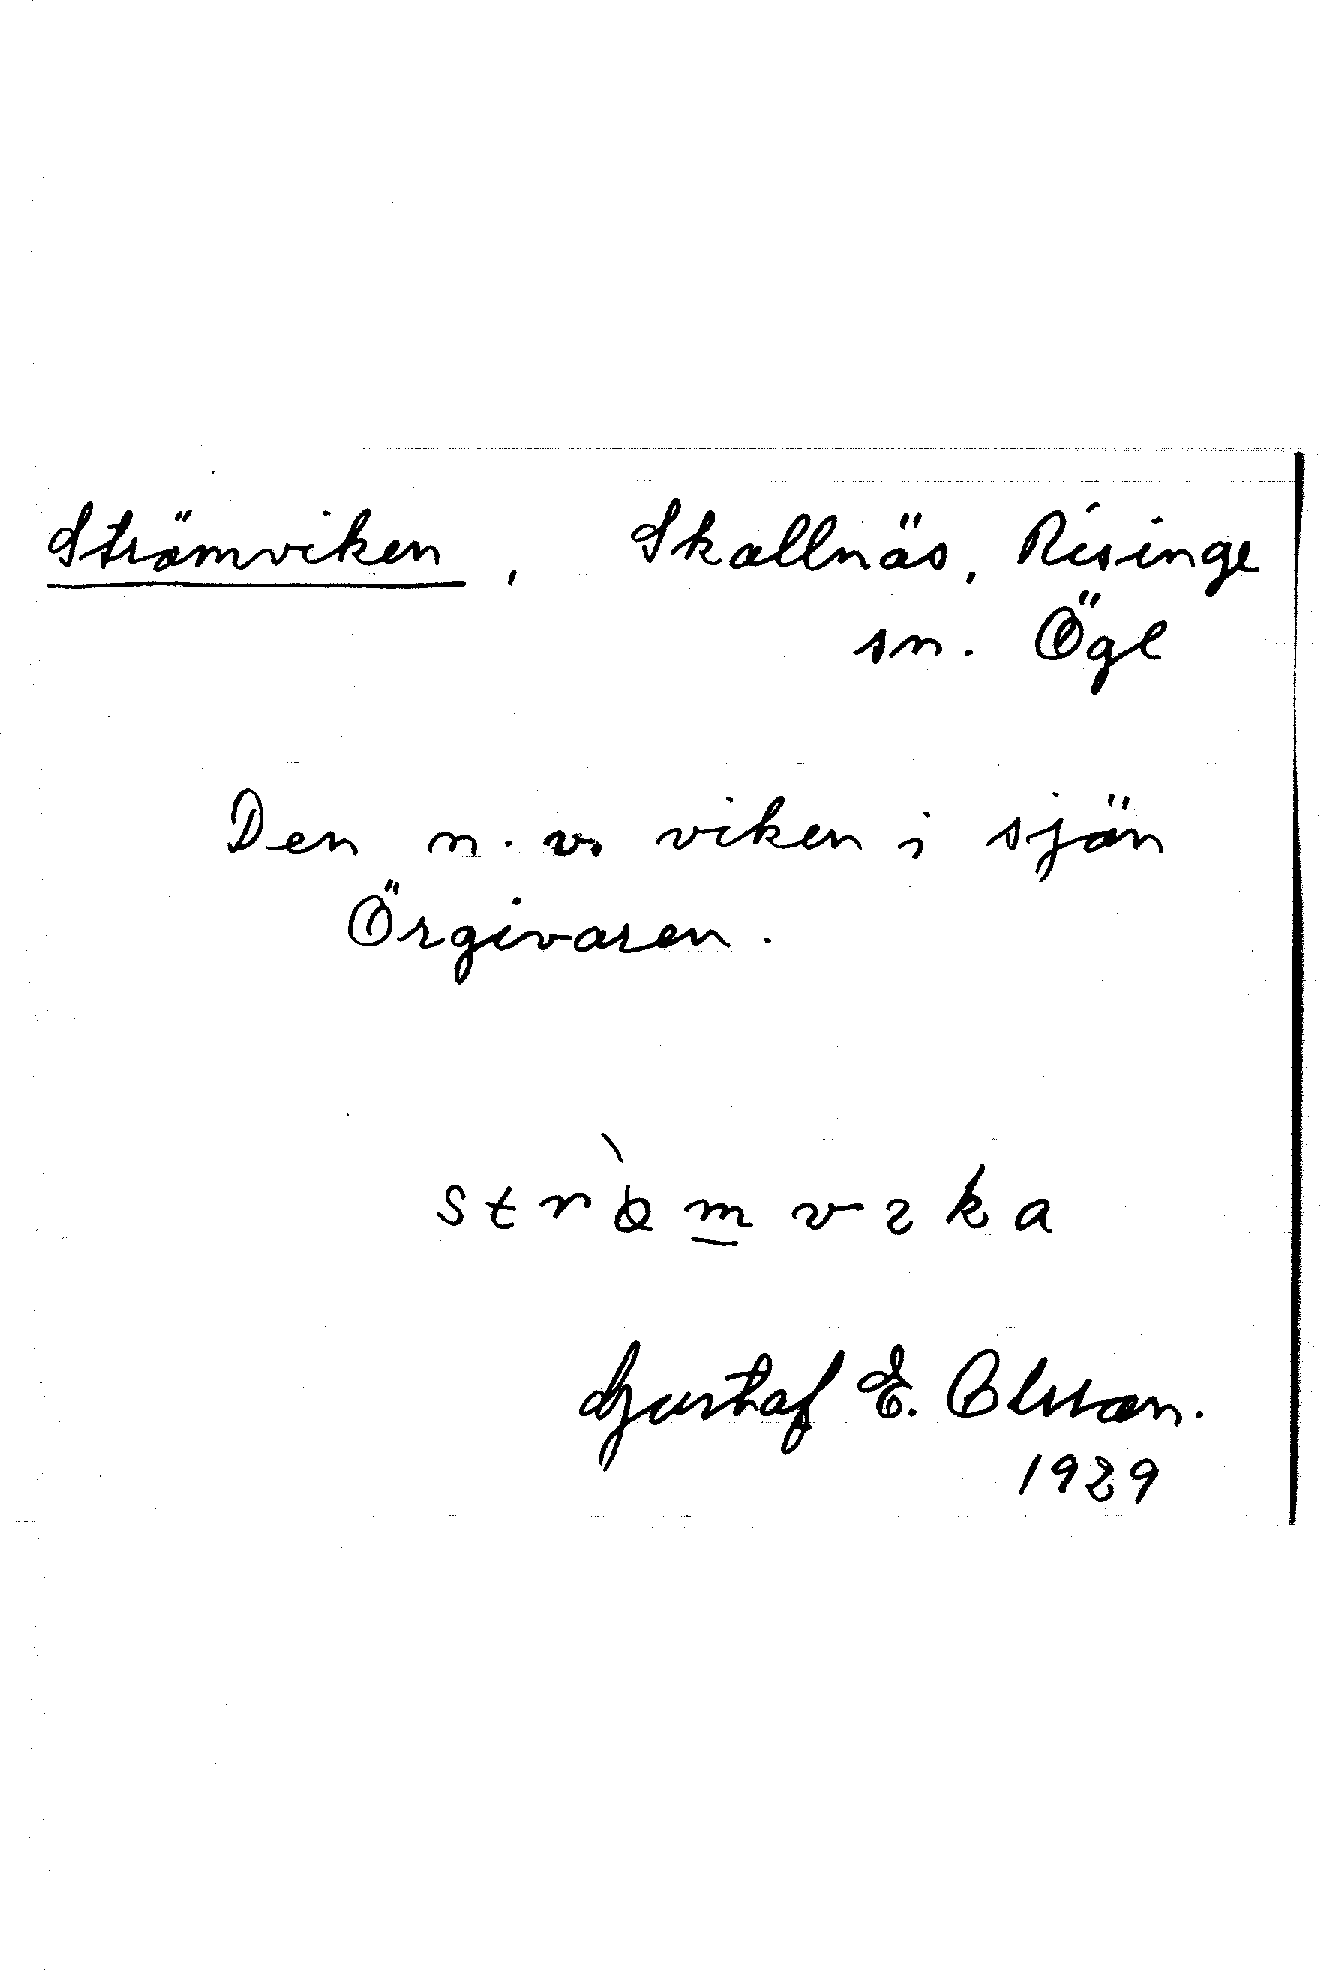 Strömviken, Skallnäs, Risinge
sn. Ögl
Den n.v. viken i sjön
Örgivaren.
Gustaf E. Olsson.
1929